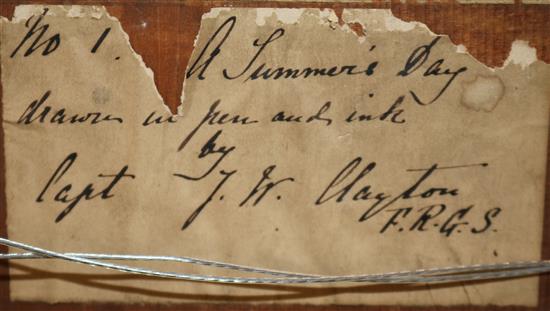 No 1. A Summer's Day
drawn in pen and ink
by
Capt J. W. Clayton
F.R.G.S.